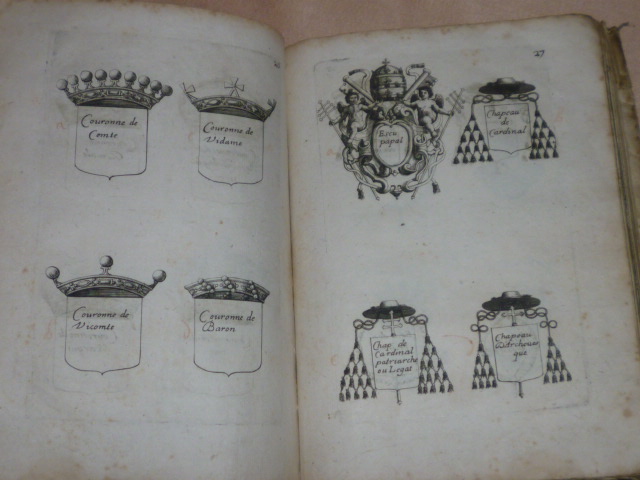 Couronne de
Comte
Couronne de
Vidame
Couronne de
Vicomte
Couronne de
Baron
27
Escu
papal
Chapeau
de
Cardinal
Chap. de
Cardinal
patriarche
ou Legat
Chapeau
que